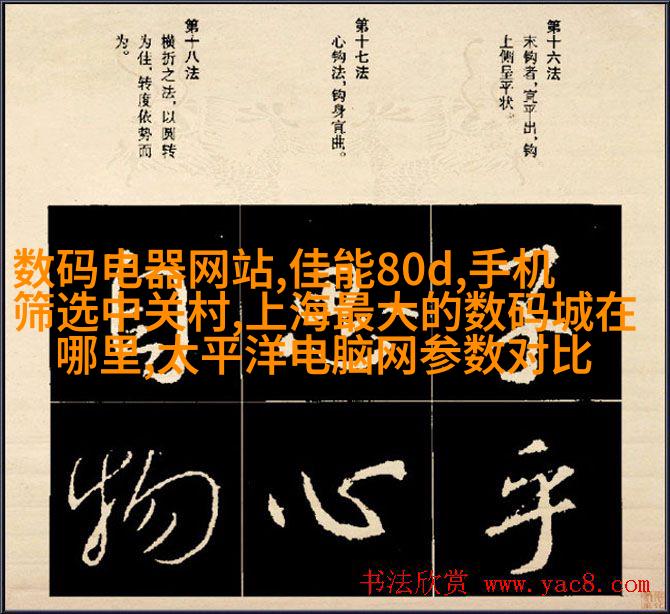 第十六法
末钩者,宜平出,钩
上侧呈平状
第十七法
心钩法,钩身宜曲。
第十八法
横折之法,以圆转
为佳,转度依势而
为。
数码电器网站,佳能80d,手机
筛选中关村,上海最大的数码城在
哪里,太平洋电脑网参数对比
子
乎
心
物
书法欣赏 www.yac8.com